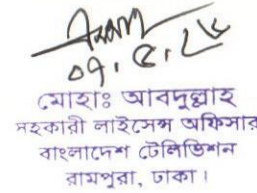 ০৭.৫.১৬
মোহাঃ আবদুল্লাহ
সহকারী লাইসেন্স অফিসার
বাংলাদেশ টেলিভিশন
রামপুরা, ঢাকা।